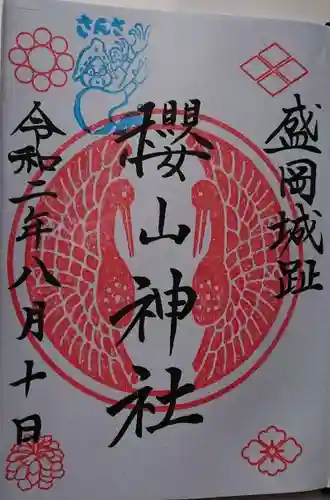 盛岡城趾
櫻山神社
さんさ
令和二年八月十日